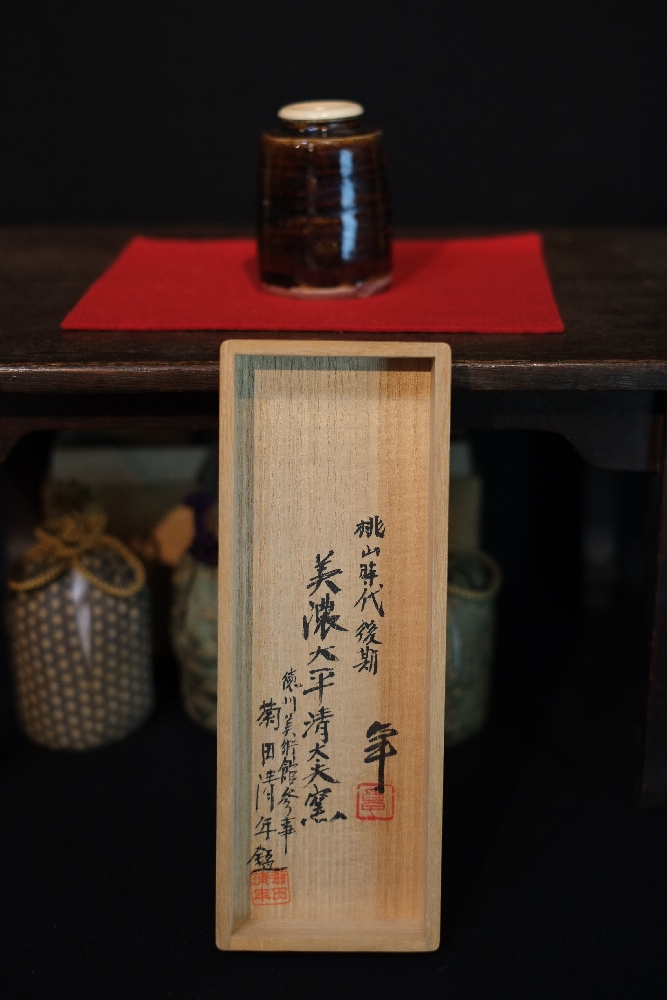 桃山時代後期
美濃大平清太夫窯
年
徳川美術館参事
菊田清年鑑